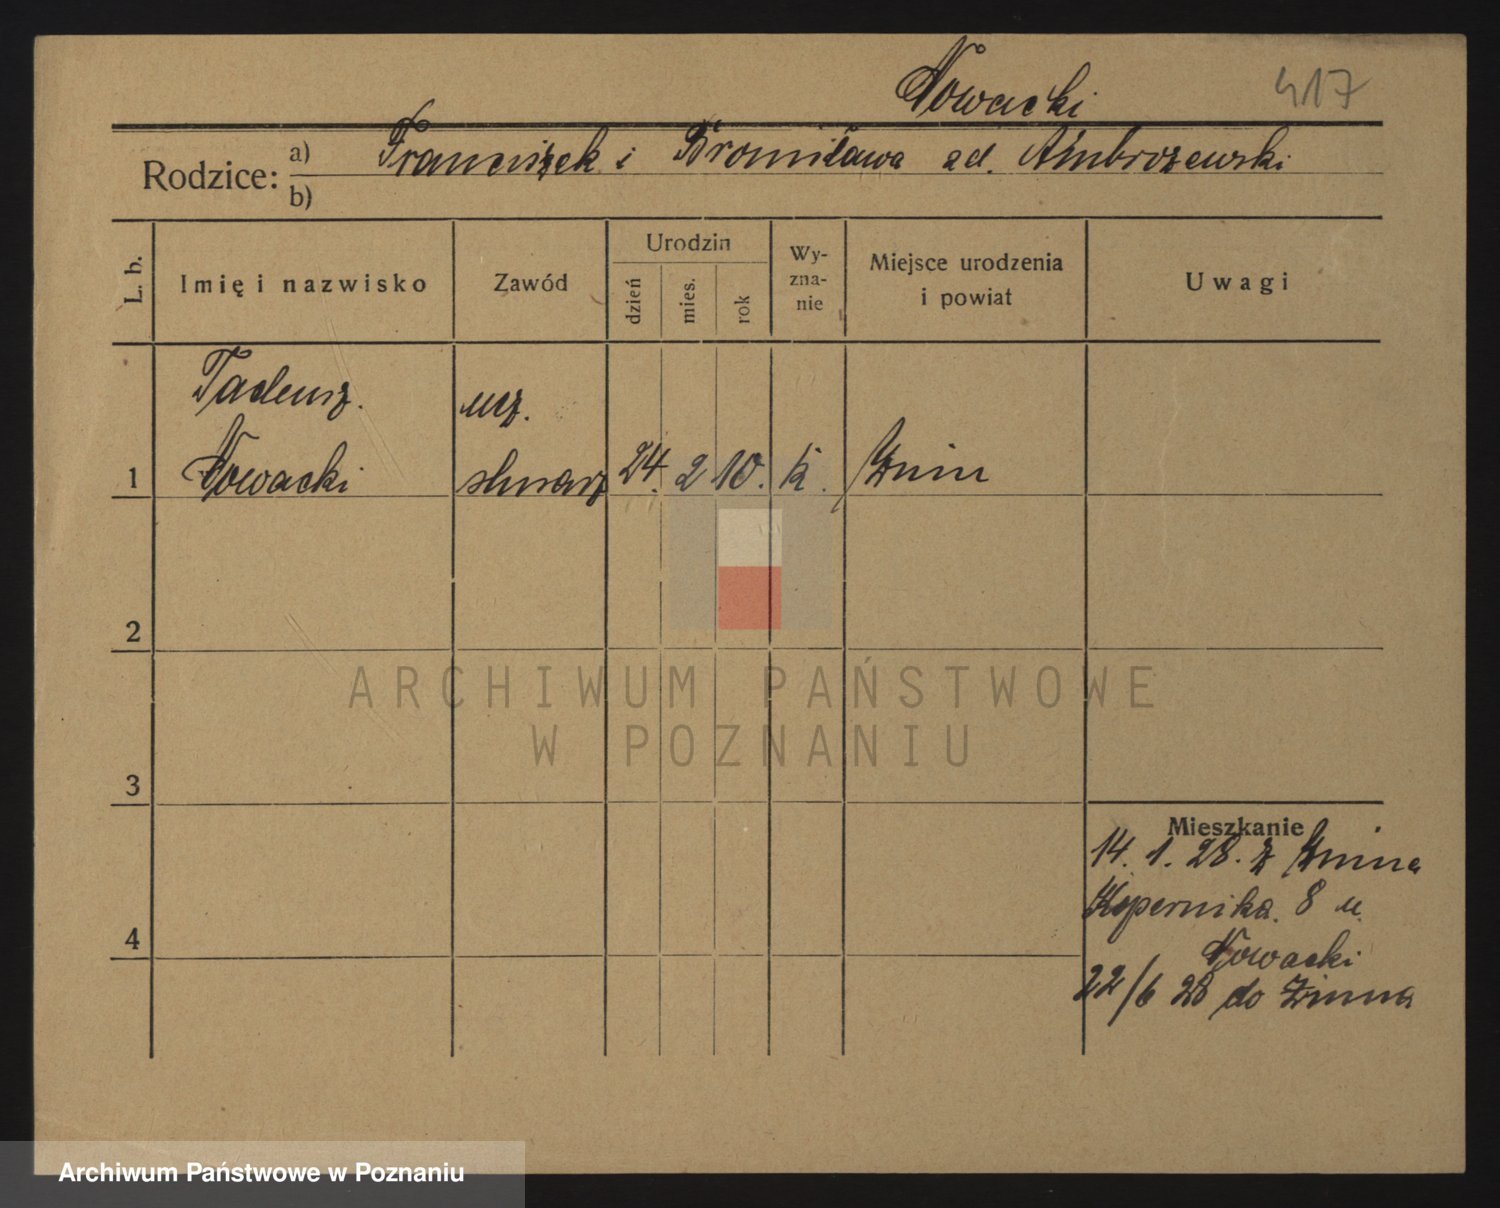 Nowacki 417
Rodzice: a) Franciszek i Bronisława zd. Ambrożewski
b)
L. b.
Imię i nazwisko
Zawód
Urodzin
dzień
mies.
rok
Wy-
zna-
nie
Miejsce urodzenia
i powiat
Uwagi
Tadeusz.
ucz.
1 Nowacki ślusarz 24. 2 10. k. Żnin
2
3
4
Mieszkanie
14. 1. 28. z Żnina
Kopernika. 8 u.
Nowacki
22/6 28 do Żnina
ARCHIWUM PAŃSTWOWE
W POZNANIU
Archiwum Państwowe w Poznaniu